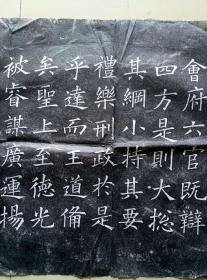 會府六官既辯
四方是則大総
其綱小持其要
禮樂刑政於是
乎達而王道備
矣聖上至德光
被睿謀廣運揚